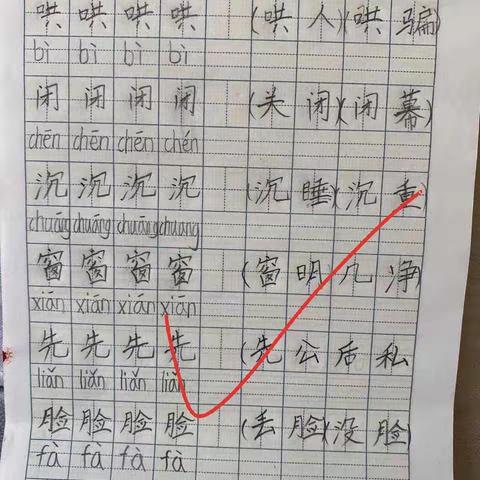 哄 哄 哄 哄 (哄 人)(哄 骗)
bì bì bì bì
闭 闭 闭 闭 (关 闭)(闭 幕)
chēn chēn chēn chén
沉 沉 沉 沉 (沉 睡)(沉 重)
chuāng chuāng chuāng chuang
窗 窗 窗 窗 (窗 明 几 净)
xiān xiān xiān xiān
先 先 先 先 (先 公 后 私
liǎn liǎn liǎn liǎn
脸 脸 脸 脸 (丢 脸)(没 脸)
fà fà fà fà